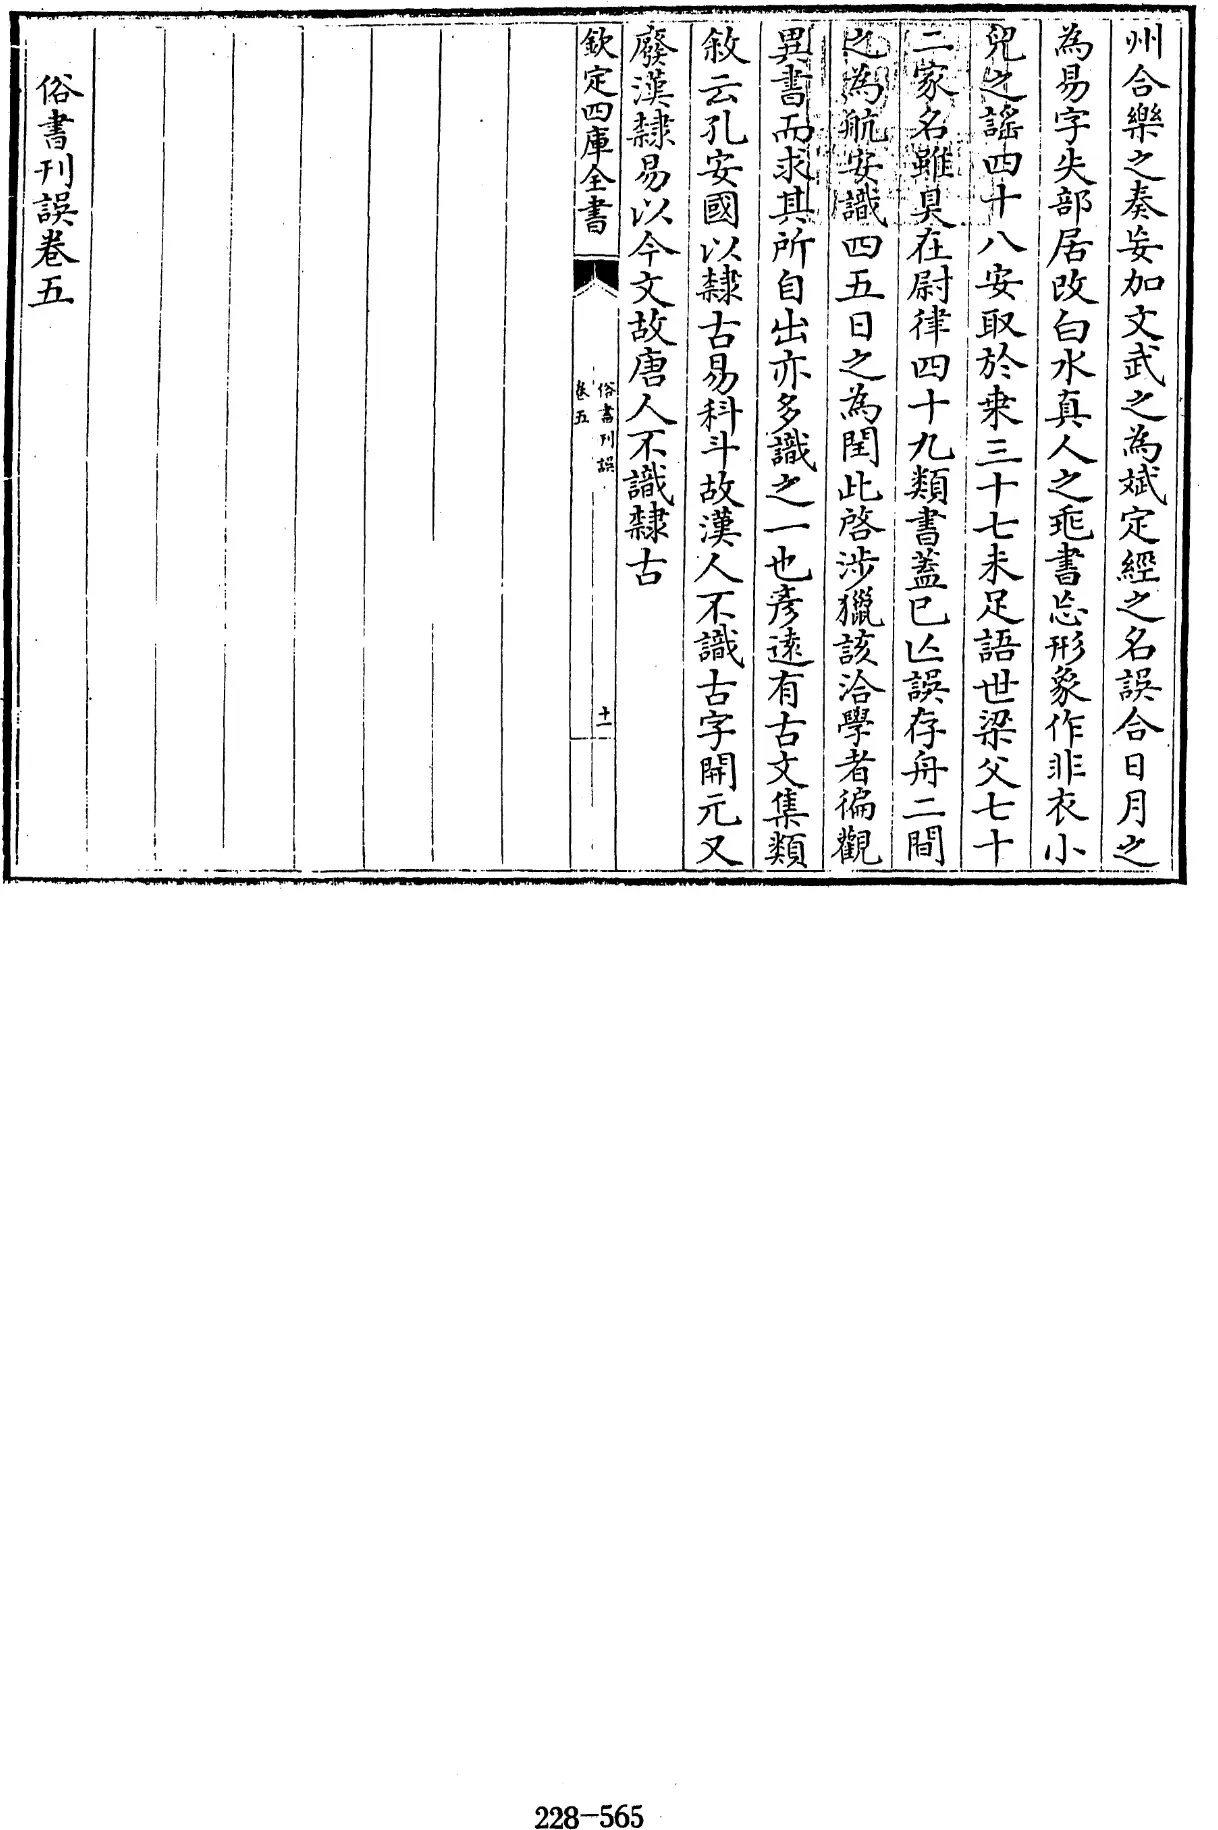 州合樂之奏妄加文武之為斌定經之名誤合日月之
為易字失部居改白水真人之乖書忘形象作非衣小
兒之謡四十八安取於桒三十七未足語世梁父七十
二家名雖具在尉律四十九類書蓋已亾誤存舟二間
之為航安識四五日之為閏此啓涉獵該洽學者徧觀
異書而求其所自出亦多識之一也彦逺有古文集類
敘云孔安國以隸古易科斗故漢人不識古字開元又
廢漢隸易以今文故唐人不識隸古
欽定四庫全書
俗書刊誤
卷五
十一
俗書刊誤卷五
228-565